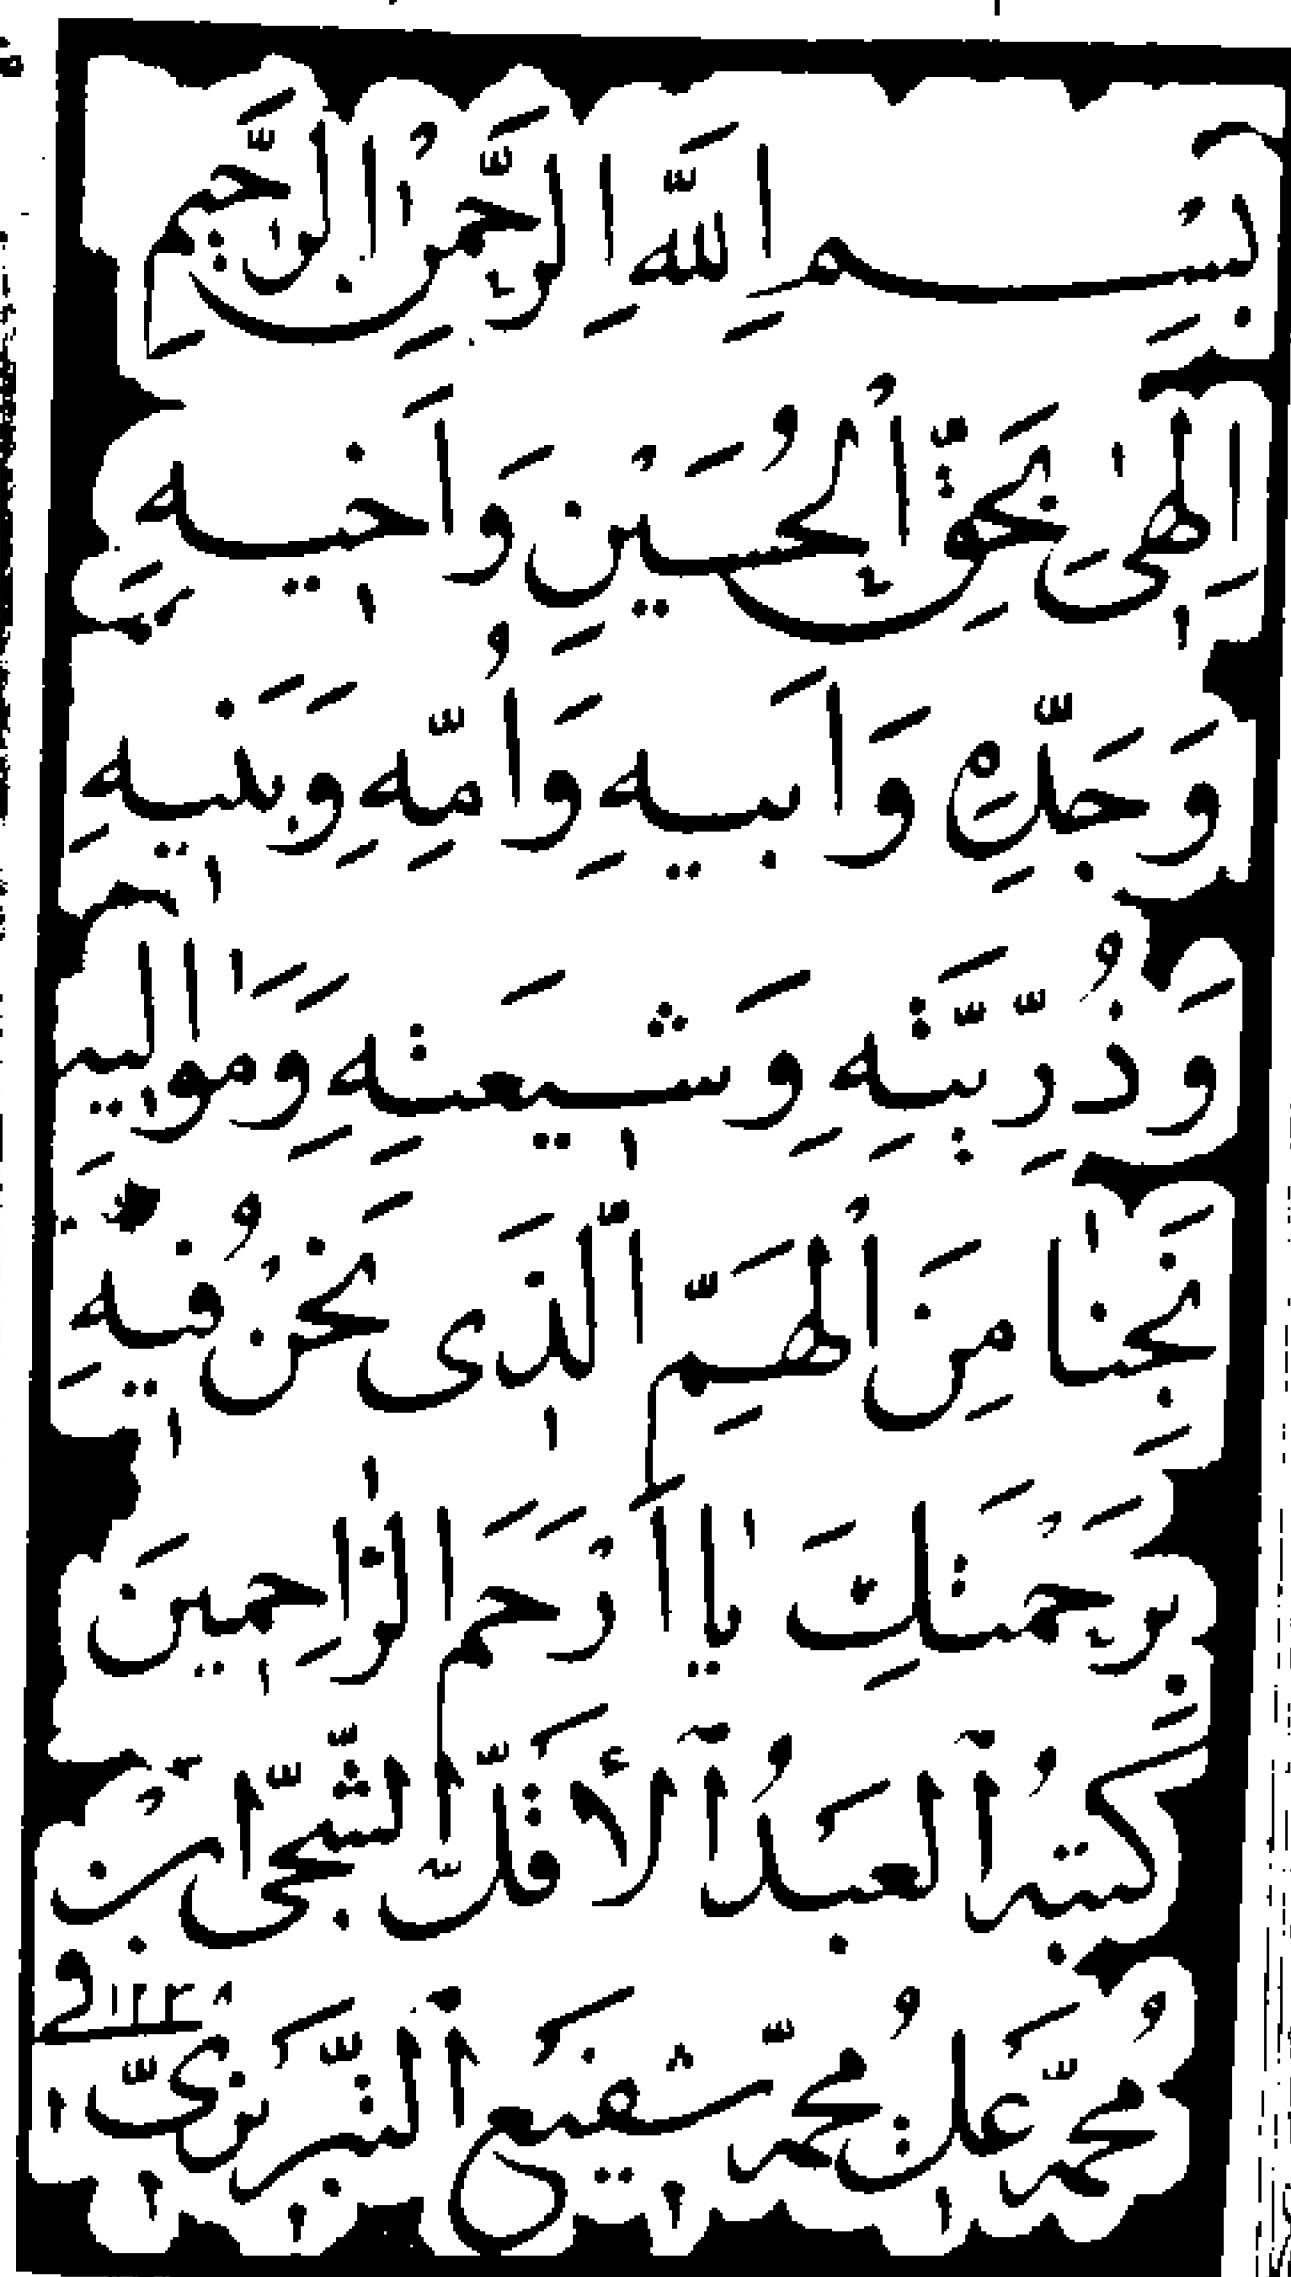 بِسْمِ اللَّهِ الرَّحْمٰنِ الرَّحِيمِ
اِلٰهی بِحَقِّ الْحُسَیْنِ وَاَخیهِ
وَجَدِّهِ وَاَبیهِ وَاُمِّهِ وَبَنیهِ
وَذُرِّیَّتِهِ وَشیعَتِهِ وَمَوٰالیهِ
نَجِّنٰا مِنَ الْهَمِّ الَّذی نَحْنُ فیهِ
بِرَحْمَتِكَ یٰا اَرْحَمَ الرّٰاحِمینَ
کَتَبَهُ الْعَبْدُ الْأَقَلُّ الشَّجّٰی ابْنُ
مُحَمَّدْ عَلی مُحَمَّدْ شَفیعْ التَّبْریزیّ فی ١٢٢٨